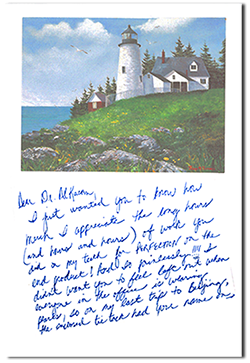 Dear Dr.
I just wanted you to know how
much I appreciate the long hours
(and hours and hours) of work you
did on my teeth for PERFECTION on the
end product! And so painlessly!!!! I
didn't want you to feel left out when
everyone in the office is wearing
pearls, so on my last trip to Beijing,
the enclosed tie tack had your name on